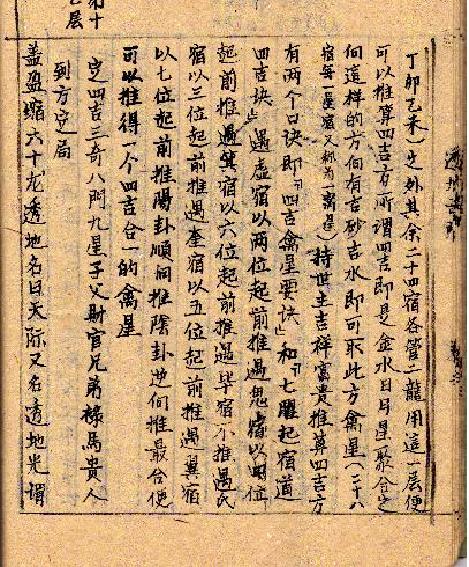 丁卯乙未）之外其余二十四宿各管二龙用这一层便
可以推算四吉方所谓四吉即是金水日月星聚合之
何这样的方向有吉砂吉水即可取此方禽星（二十八
宿每一星宿又称为一禽星）持世主吉祥富贵推算四吉方
有两个口诀即「四吉禽星要诀」和「七曜起宿道
四吉诀」遇虚宿以两位起前推遇鬼宿以四位
起前推遇箕宿以六位起前推遇毕宿不推遇氏
宿以三位起前推遇奎宿以五位起前推遇翼宿
以七位起前推阳卦顺向推阴卦逆向推最合便
可以推得一个四吉合一的禽星
定四吉三奇八门九星子父财官兄弟禄马贵人
到方定局
盖盈缩六十龙透地名曰天际又名透地光谓
第十
层